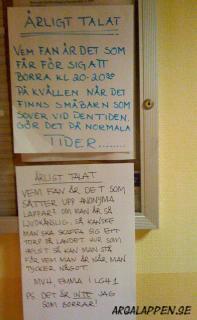 ÄRLIGT TALAT
VEM FAN ÄR DET SOM
FÅR FÖR SIG ATT
BORRA KL 20-20³⁰
PÅ KVÄLLEN NÄR DET
FINNS SMÅBARN SOM
SOVER VID DEN TIDEN.
GÖR DET PÅ NORMALA
TIDER........
ÄRLIGT TALAT
VEM FAN ÄR DET SOM
SÄTTER UPP ANONYMA
LAPPAR? OM MAN ÄR SÅ
LJUDKÄNSLIG SÅ KANSKE
MAN SKA SKAFFA SIG ETT
TORP PÅ LANDET. HUR SOM
HELST SÅ KAN MAN STÅ
FÖR VEM MAN ÄR NÄR MAN
TYCKER NÅGOT.
MVH. EMMA I LGH 1
PS. DET ÄR INTE JAG
SOM BORRAR!
ARGALAPPEN.SE